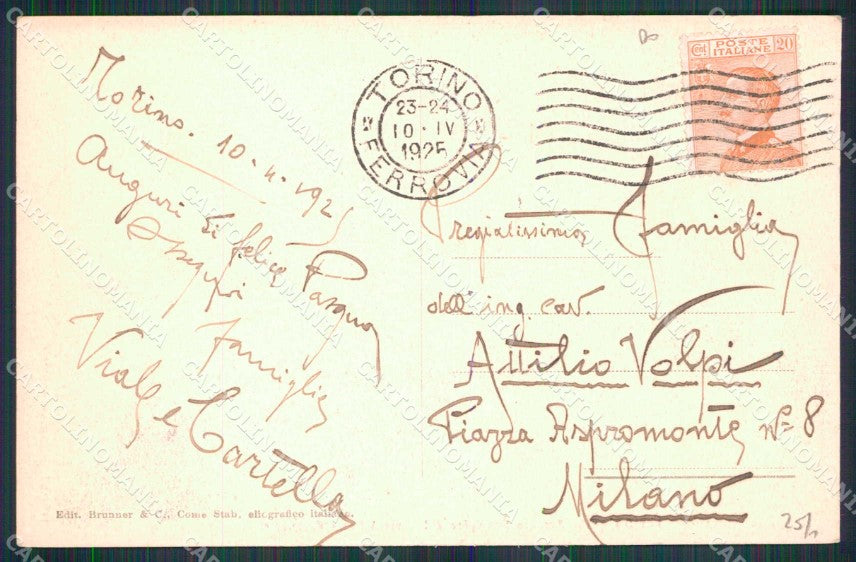 Torino. 10.4.1925
Auguri di felice Pasqua
Ossequi
famiglia
Viale e Cartella
TORINO
23-24
10·IV
1925
FERROVIA
Cent POSTE 20
ITALIANE
Pregiatissima famiglia
dell'ing. cav.
Attilio Volpi
Piazza Aspromonte Nº 8
Milano
Edit. Brunner & C., Como Stab. eliografico italiano.
25/1
CARTOLINOMANIA